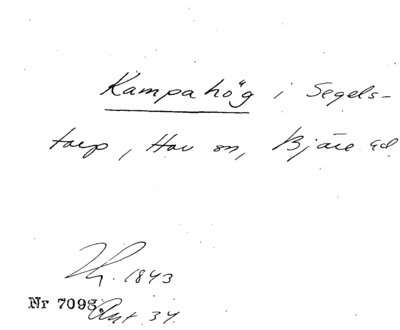 Kampahög i Segels-
torp, Hov sn, Bjäre hd.
1843
Nr 7098. Ant. 34.